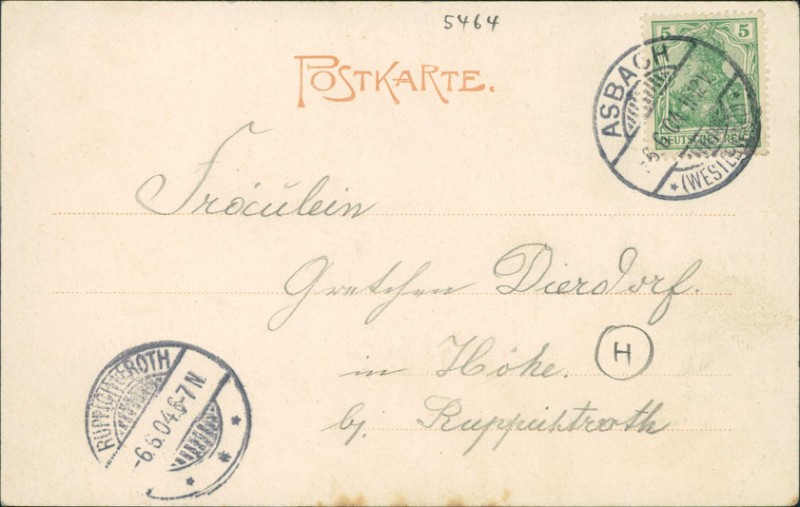 5464
POSTKARTE.
5 5
DEUTSCHES REICH
ASBACH
6.04.
(WESTER
Fräulein
Gretchen Dierdorf.
in Höhe. H
bj. Ruppichtroth
RUPPICHTEROTH
-6.6.04.6-7N.